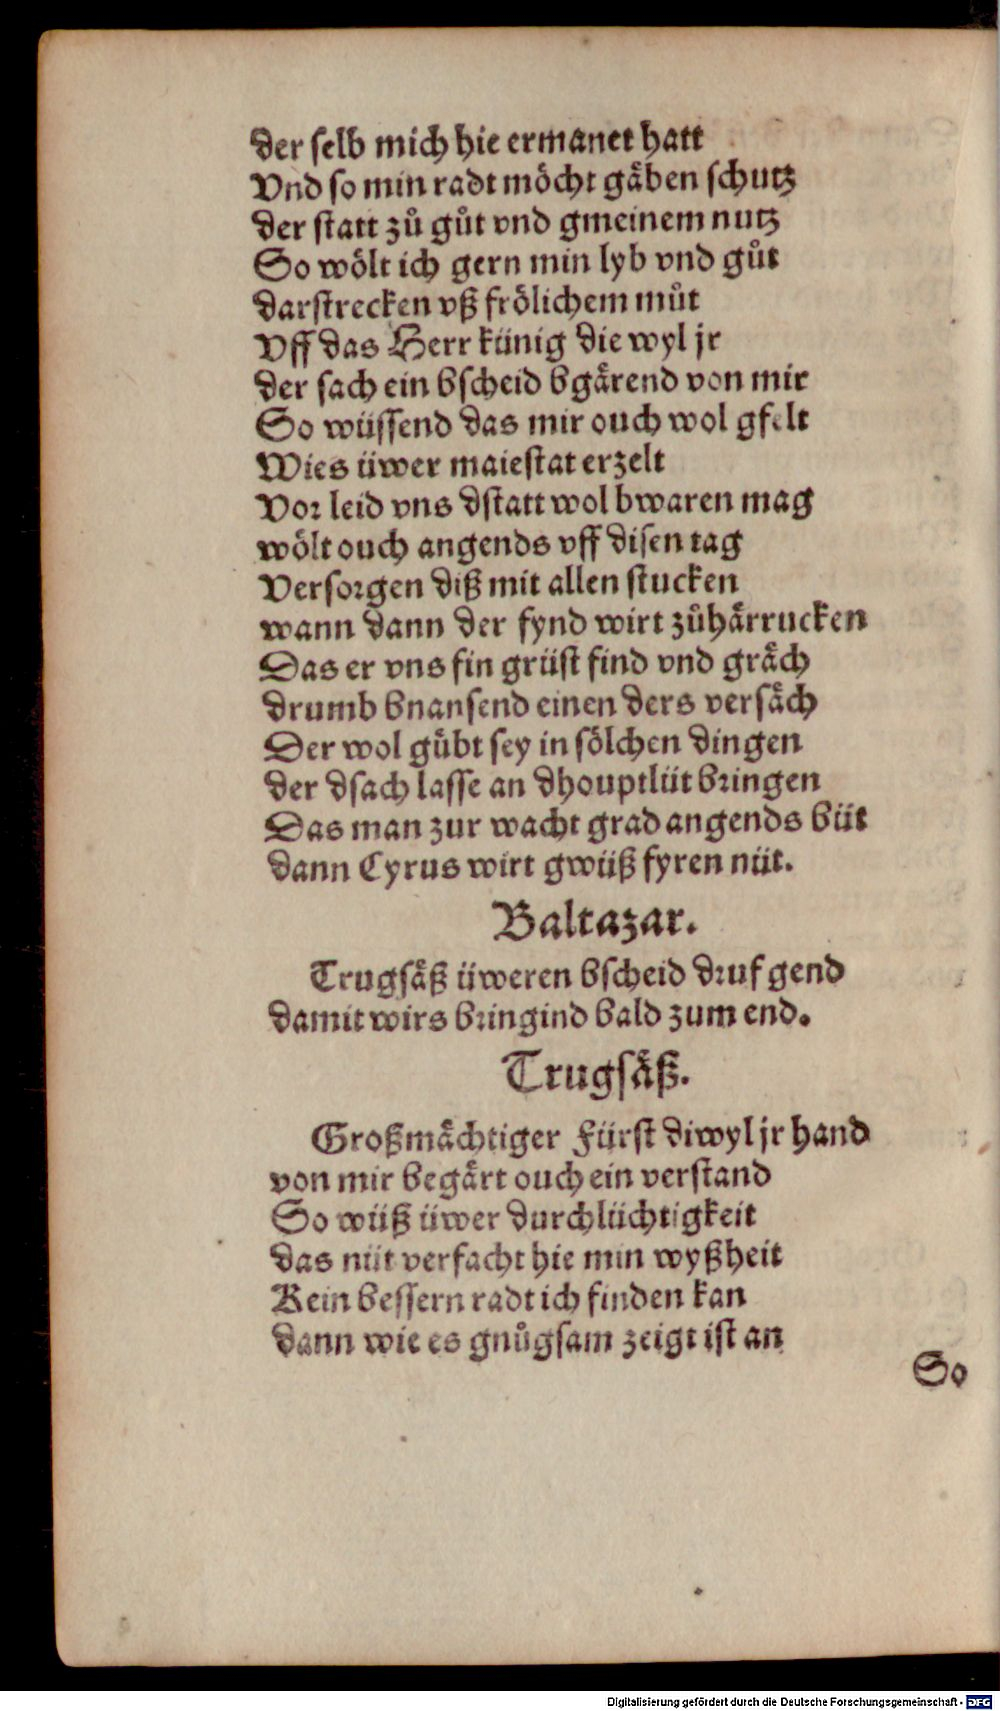 der selb mich hie ermanet hatt
Vnd so min radt möcht gäben schutz
der statt zů gůt vnd gmeinem nutz
So wölt ich gern min lyb vnd gůt
darstrecken vß frölichem můt
Vff das Herr künig die wyl jr
der sach ein bscheid bgärend von mir
So wüssend das mir ouch wol gfelt
Wies üwer maiestat erzelt
Vor leid vns dstatt wol bwaren mag
wölt ouch angends vff disen tag
Versorgen diß mit allen stucken
wann dann der fynd wirt zůhärrucken
Das er vns fin grüst find vnd gräch
drumb bnansend einen ders versäch
Der wol gübt sey in sölchen dingen
der dsach lasse an dhouptlüt bringen
Das man zur wacht grad angends büt
dann Cyrus wirt gwüß fyren nüt.
Baltazar.
Trugsäß üweren bscheid druf gend
damit wirs bringind bald zum end.
Trugsäß.
Großmächtiger Fürst diwyl jr hand
von mir begärt ouch ein verstand
So wüß üwer durchlüchtigkeit
das nüt verfacht hie min wyßheit
Kein bessern radt ich finden kan
dann wie es gnůgsam zeigt ist an
So
Digitalisierung gefördert durch die Deutsche Forschungsgemeinschaft - DFG